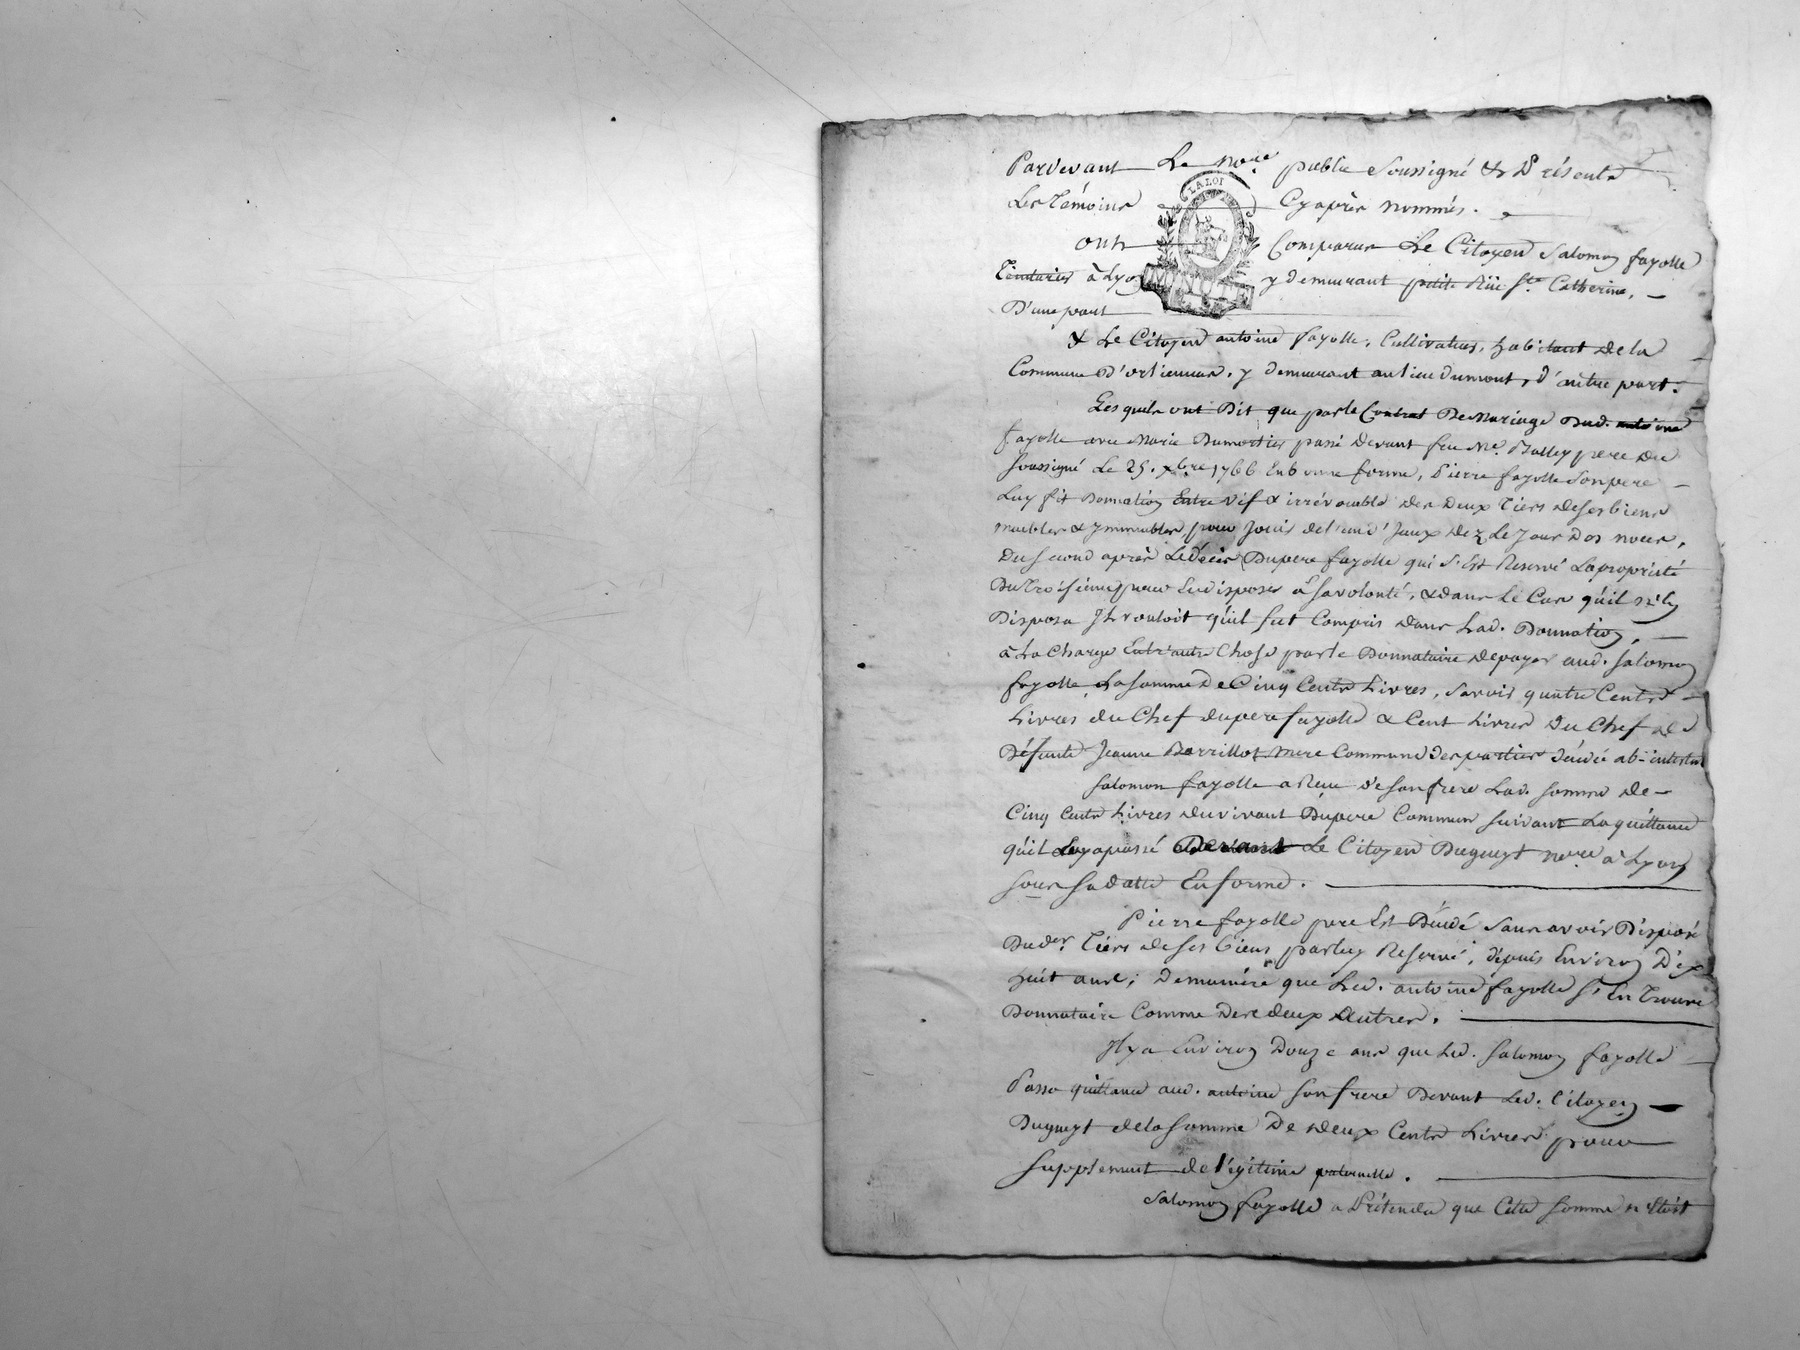 Pardevant Le no.re public Soussigné & Présents
Les Témoins Cyaprès nommés.
LA LOI
MINUTE
ont Comparu Le Citoyen Salomon fayolle
Teinturier à Lyon y demeurant petite Rüe Ste. Catherine,
D'une part
& Le Citoyen antoine fayolle, Cultivateur, habitant dela
Commune D'orlienas, y demeurant au lieu dumont, d'autre part.
Lesquels ont Dit que parle Contrat De Mariage Dud. antoine
fayolle avec Marie Dumortier passé Devant feu Me. Balley pere du
Soussigné Le 25. xbre 1766 En bonne forme, Pierre fayolle Son pere
Luy fit Donnation Entre vif & irrévocable des Deux Tiers de Ses biens
meubles & ymmeubles, pour Jouir del'un d'Iceux dez Le Jour Des noces,
Du Second après Le décès Dupere fayolle qui S'Est Reservé La propriété
Du Troisième pour En disposer à Sa volonté, & dans Le Cas qu'il n'En
Disposa Il vouloit qu'il fut Compris dans Lad. Donnation,
à La Charge Entr'autre Chose parle Donnataire de payer aud. Salomon
fayolle La Somme De Cinq Cents Livres, Savoir quatre Cents
Livres du Chef dupere fayolle & Cent Livres Du Chef de
Défunte Jeanne Berrillot mere Commune des parties décédée ab-intestat
Salomon fayolle a Reçu de Son frere Lad. Somme de
Cinq Cents Livres du vivant Dupere Commun Suivant La quittance
qu'il Luy a passé Devant Le Citoyen Dugueyt no.re à Lyon
Sous Sa datte En forme.
Pierre fayolle pere Est Décédé Sans avoir Disposé
Duder. Tiers de Ses biens par luy Reservé, depuis Environ Dix
huit ans; De manière que Led. antoine fayolle S'En Trouve
Donnataire Comme Des deux autres.
Il y a Environ Douze ans que Led. Salomon fayolle
Passa quittance aud. antoine Son frere Devant Led. Citoyen
Dugueyt dela Somme De deux Cents Livres pour
Supplement de légitime paternelle.
Salomon fayolle a Prétendu que Cette Somme n'Etoit